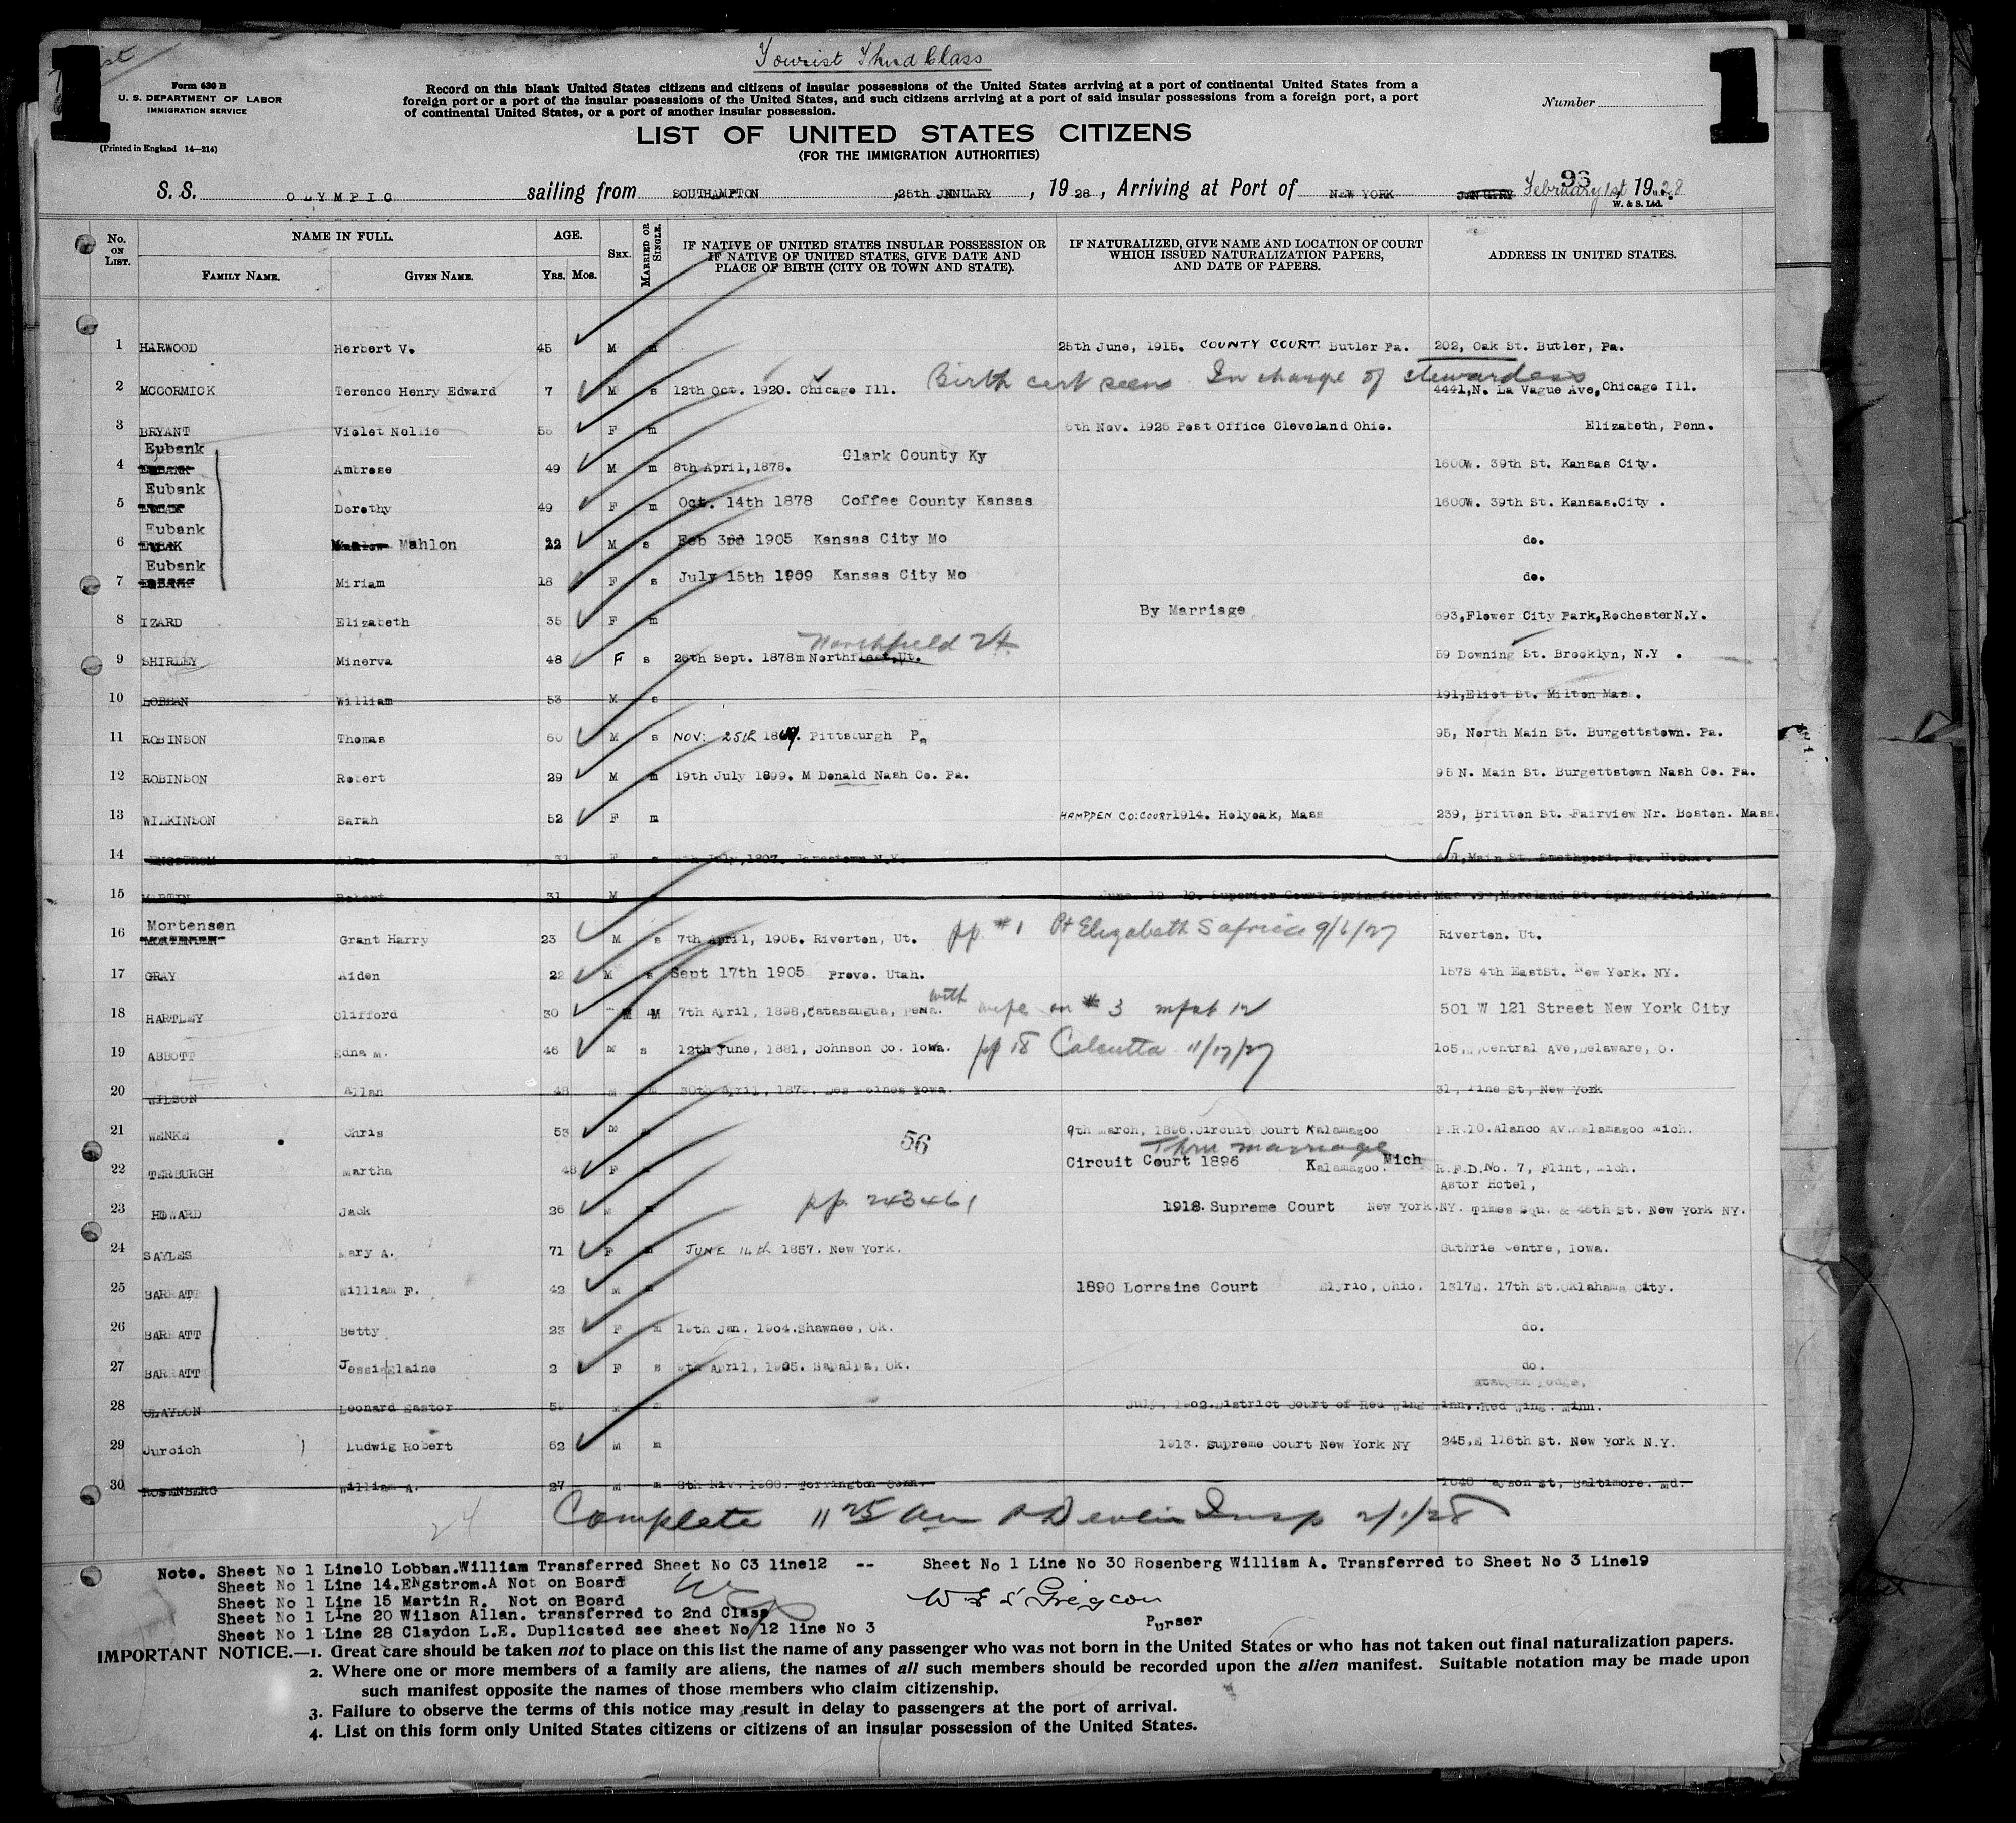 Tourist Third Class
Form 630 B
U. S. DEPARTMENT OF LABOR
IMMIGRATION SERVICE
(Printed in England 14—214)
1
1
Record on this blank United States citizens and citizens of insular possessions of the United States arriving at a port of continental United States from a
foreign port or a port of the insular possessions of the United States, and such citizens arriving at a port of said insular possessions from a foreign port, a port
of continental United States, or a port of another insular possession.
Number
LIST OF UNITED STATES CITIZENS
(FOR THE IMMIGRATION AUTHORITIES)
93
S. S. OLYMPIC sailing from SOUTHAMPTON ,25th JNNUARY , 19 28 , Arriving at Port of NEW YORK JANUARY February 1st 1928
W. & S. Ltd.
No. ON LIST. NAME IN FULL. FAMILY NAME. GIVEN NAME. AGE. YRS. MOS. SEX. MARRIED OR SINGLE. IF NATIVE OF UNITED STATES INSULAR POSSESSION OR IF NATIVE OF UNITED STATES, GIVE DATE AND PLACE OF BIRTH (CITY OR TOWN AND STATE). IF NATURALIZED, GIVE NAME AND LOCATION OF COURT WHICH ISSUED NATURALIZATION PAPERS, AND DATE OF PAPERS. ADDRESS IN UNITED STATES.
1 HARWOOD Herbert V. 45 M m 25th June, 1915. COUNTY COURT Butler Pa. 202, Oak St. Butler, Pa.
Birth cert seen In charge of stewardess
2 MCCORMICK Terence Henry Edward 7 M s 12th Oct. 1920. Chicago Ill. 4441,N. La Vague Ave, Chicago Ill.
3 BRYANT Violet Nellie 55 F m 6th Nov. 1926 Post Office Cleveland Ohio. Elizabeth, Penn.
4 Eubank Ambrose 49 M m 8th April,1878. Clark County Ky 1600W. 39th St. Kansas City.
5 Eubank Dorothy 49 F m Oct. 14th 1878 Coffee County Kansas 1600W. 39th St. Kansas.City .
6 Eubank Mahlon 22 M s Feb 3rd 1905 Kansas City Mo do.
7 Eubank Miriam 18 F s July 15th 1909 Kansas City Mo do.
8 IZARD Elizabeth 35 F m By Marriage 693,Flower City Park,Rochester N.Y.
Northfield Vt.
9 SHIRLEY Minerva 48 F s 26th Sept. 1878m 59 Downing St. Brooklyn, N.Y .
10 LOBBAN William 53 M s 191,Eliot St. Milton Mas .
11 ROBINSON Thomas 60 M s NOV: 25th Pittsburgh Pa 95, North Main St. Burgettstown. Pa.
12 ROBINSON Robert 29 M m 19th July 1899. M Donald Nash Co. Pa. 95 N. Main St. Burgettstown Nash Co. Pa.
13 WILKINSON Sarah 52 F m HAMPDEN CO: COURT 1914. Holyoak, Mass 239, Britten St. Fairview Nr. Boston. Mass.
14
15 MARTIN Robert 31 M
16 Mortensen Grant Harry 23 M s 7th April, 1905. Riverton, Ut. pp. #1 Pt Elizabeth S africa 9/6/27 Riverton. Ut.
17 GRAY Aiden 22 M s Sept 17th 1905 Provo. Utah. 1578 4th EastSt. New York. NY.
18 HARTLEY Clifford 30 M 7th April, 1898,Catasaugua, Pena. with wife on #3 12 501 W 121 Street New York City
19 ABBOTT Edna M. 46 M s 12th June, 1881, Johnson Co. Iowa. pp 18 Calcutta 11/17/27 Central Ave,Delaware, O.
20 WILSON Allan 48 M 30th April, Des Moines Iowa. 31, Pine St, New York
21 WENKE Chris 53 M 9th March, 1896.Circuit Court Kalamazoo R.R.10.Alanco Av.Kalamazoo Mich.
56
Thru marriage
22 TERBURGH Martha 48 F Circuit Court 1896 Kalamazoo. Mich R.F.D.No. 7, Flint, Mich.
Astor Hotel,
23 HOWARD Jack 26 M pp. 243461 1918. Supreme Court New York.NY. Times Squ. & 45th St. New York NY.
24 SAYLES Mary A. 71 F m JUNE 14th 1857. New York. Guthrie Centre, Iowa.
25 BARRATT William F. 42 M m 1890 Lorraine Court Elyrio, Ohio. 1317E. 17th St.Oklahama City.
26 BARRATT Betty 23 F m 19th Jan. 1904.Shawnee, Ok. do.
27 BARRATT Jessie Elaine 2 F s April, 1905. Sapalpa, Ok. do.
28 CLAYDON Leonard M July, 1902.District Court of Red Wing Minn. Red Wing. Minn.
29 Jurcich Ludwig Robert 62 M m 1913. Supreme Court New York NY 245,E 116th St. New York N.Y.
30 ROSENBERG William A. 27 M m Torrington Conn. St, Baltimore. Md.
24
Complete 11 25 am Devlin Insp 2/1/28
Note. Sheet No 1 Line10 Lobban.William Transferred Sheet No C3 line12 -- Sheet No 1 Line No 30 Rosenberg William A. Transferred to Sheet No 3 Line19
Sheet No 1 Line 14.Engstrom.A Not on Board
Sheet No 1 Line 15 Martin R. Not on Board
Sheet No 1 Line 20 Wilson Allan. transferred to 2nd Class
Sheet No 1 Line 28 Claydon L.E. Duplicated see sheet No 12 line No 3
Purser
IMPORTANT NOTICE.—1. Great care should be taken not to place on this list the name of any passenger who was not born in the United States or who has not taken out final naturalization papers.
2. Where one or more members of a family are aliens, the names of all such members should be recorded upon the alien manifest. Suitable notation may be made upon
such manifest opposite the names of those members who claim citizenship.
3. Failure to observe the terms of this notice may result in delay to passengers at the port of arrival.
4. List on this form only United States citizens or citizens of an insular possession of the United States.